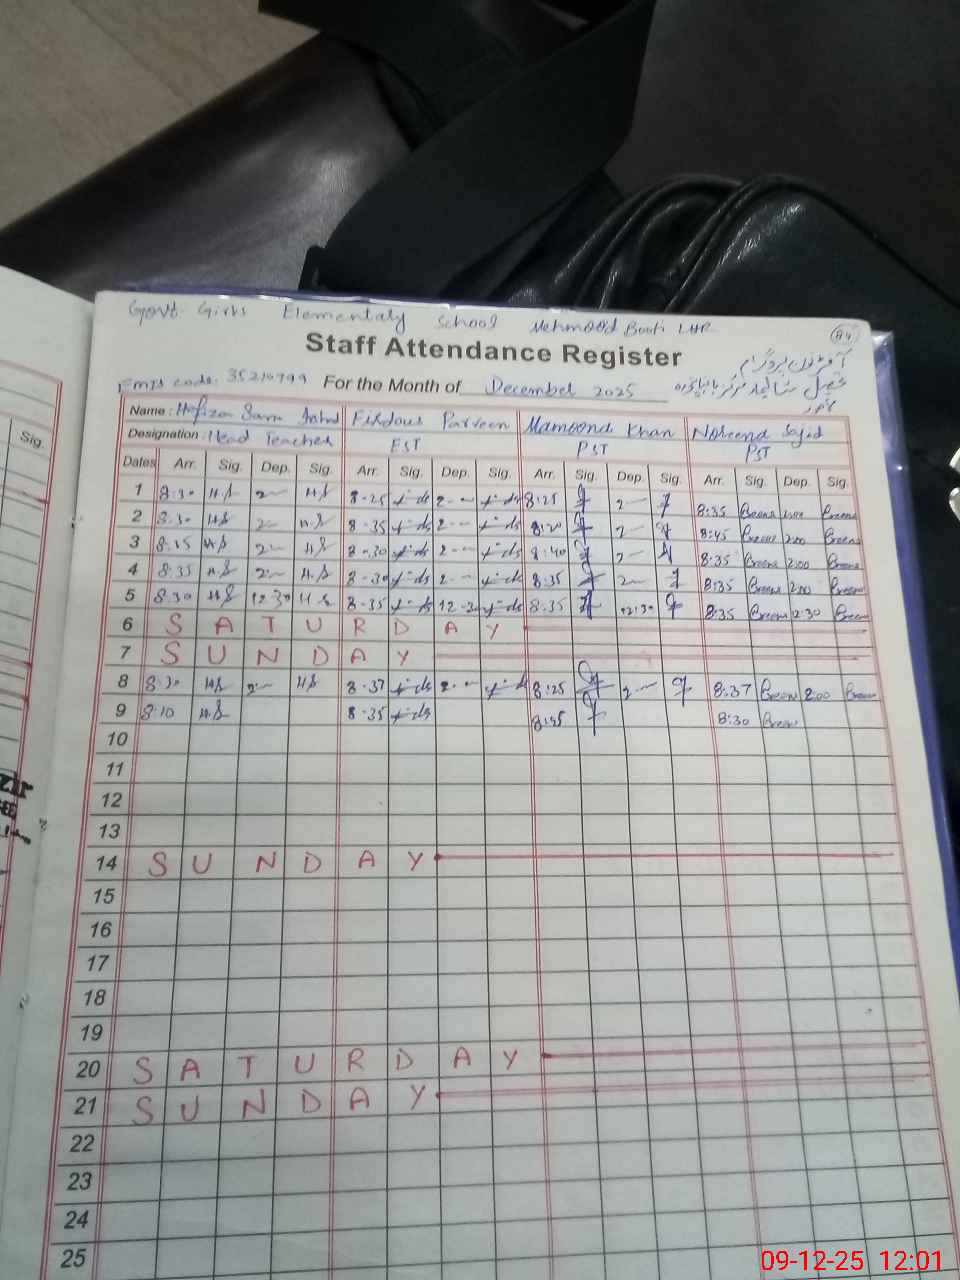 Govt. Girls Elementary School Mehmood Booti LHR
84
Staff Attendance Register
Emis code: 35210799 For the Month of December 2025
Name: Firdous Parveen Mamoona Khan Noreena Sajid
Designation: Head Teacher EST PST PST
Dates Arr. Sig. Dep. Sig. Arr. Sig. Dep. Sig. Arr. Sig. Dep. Sig. Arr. Sig. Dep. Sig.
1 8:30 H.S 2— H.S 8-25 2-- 8:25 2— 8:35
2 8:30 H.S 2— H.S 8-35 2-- 8:20 2— 8:45 2:00
3 H.S 2— H.S 8-30 2-- 8:40 2— 8:35 2:00
4 8:35 H.S 2— H.S 8-30 2-- 8:35 2— 8:35 2:00
5 8:30 H.S 12:30 H.S 8-35 12-30 8:35 12:30 8:35 2:30
6 SATURDAY
7 SUNDAY
8 8:30 H.S 2— H.S 8-37 2-- 8:25 2— 8:37 2:00
9 8:10 H.S 8-35 8:45 8:30
10
11
12
13
14 SUNDAY
15
16
17
18
19
20 SATURDAY
21 SUNDAY
22
23
24
25
Sig.
09-12-25 12:01